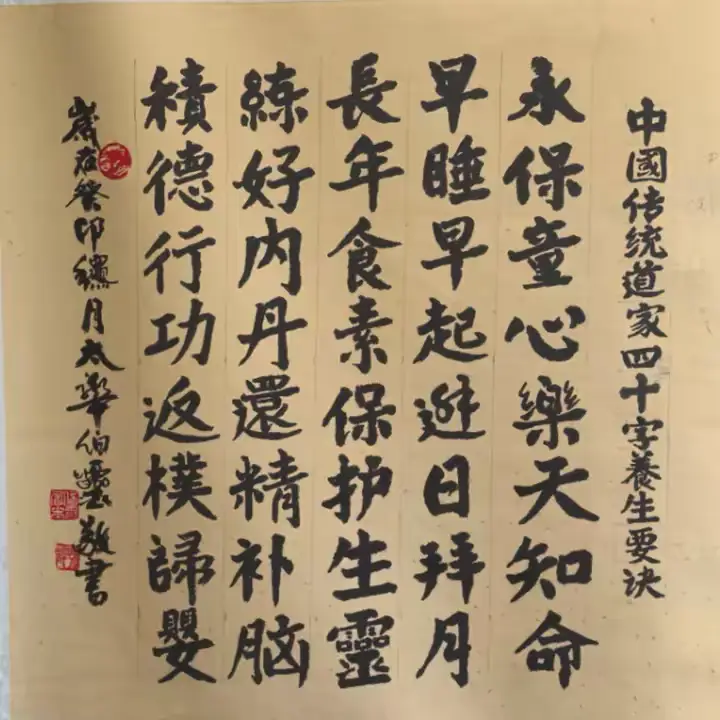 中國传统道家四十字養生要诀
永保童心樂天知命
早睡早起日拜月
長年食素保护生靈
練好内丹還精补脑
積德行功返樸歸嬰
歲在癸卯月太華伯敬書